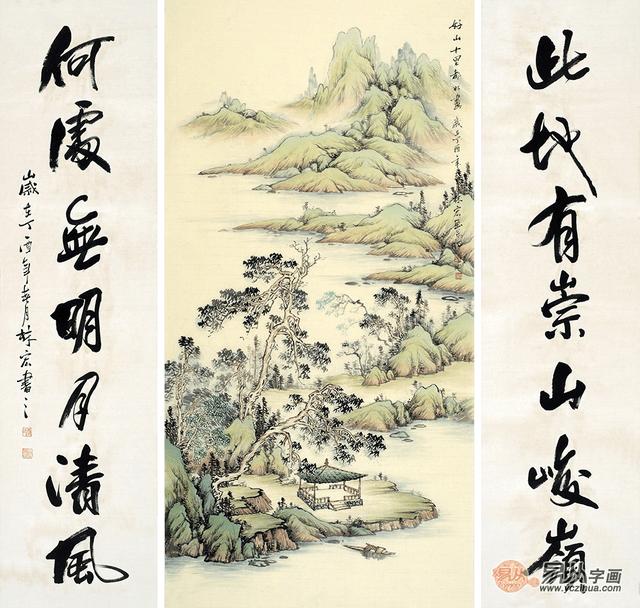 此地有崇山峻嶺
好山十里都如畫 歲在丁酉年
何處無明月清風
歲在丁酉年冬月林宏書之
易从字画
www.yczihua.com